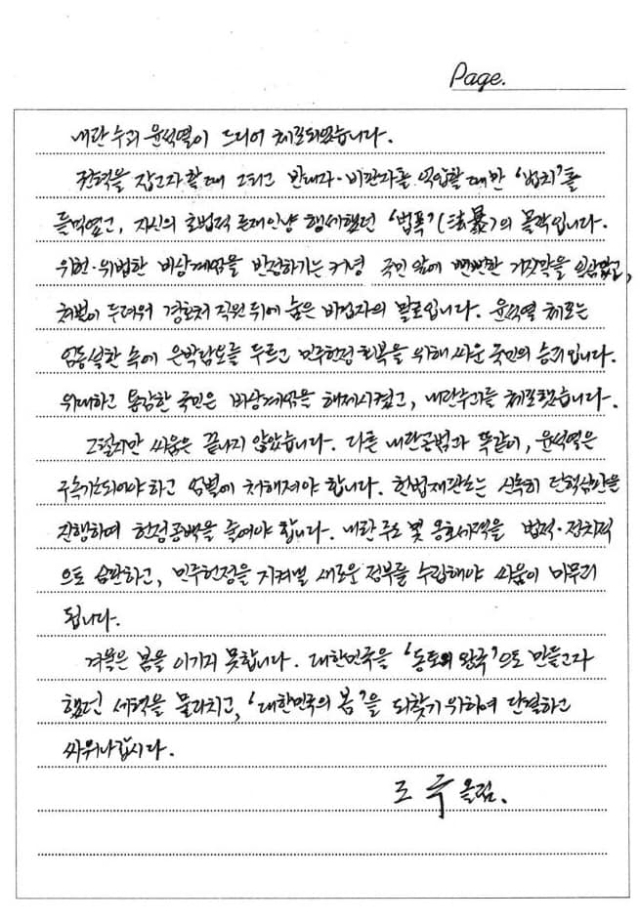 Page.
내란 수괴 윤석열이 드디어 체포되었습니다.
권력을 잡고자 할 때 그리고 반대자·비판자를 억압할 때만 '법치'를
들먹였고, 자신의 초법적 존재인양 행세했던 '법폭'(法暴)의 몰락입니다.
위헌·위법한 비상계엄을 반성하기는커녕 국민 앞에 뻔뻔한 거짓말을 일삼았고,
처벌이 두려워 경호처 직원 뒤에 숨은 비겁자의 말로입니다. 윤석열 체포는
엄동설한 속에 은박담요를 두르고 민주헌정 회복을 위해 싸운 국민의 승리입니다.
위대하고 용감한 국민은 비상계엄을 해제시켰고, 내란수괴를 체포했습니다.
그렇지만 싸움은 끝나지 않았습니다. 다른 내란공범과 똑같이, 윤석열은
구속기소되어야 하고 엄벌에 처해져야 합니다. 헌법재판소는 신속히 탄핵심판을
진행하여 헌정공백을 줄여야 합니다. 내란 주도 및 옹호세력을 법적·정치적
으로 심판하고, 민주헌정을 지켜낼 새로운 정부를 수립해야 싸움이 마무리
됩니다.
겨울은 봄을 이기지 못합니다. 대한민국을 '동토의 왕국'으로 만들고자
했던 세력을 물리치고, '대한민국의 봄'을 되찾기 위하여 단결하고
싸워나갑시다.
조 국 올림.